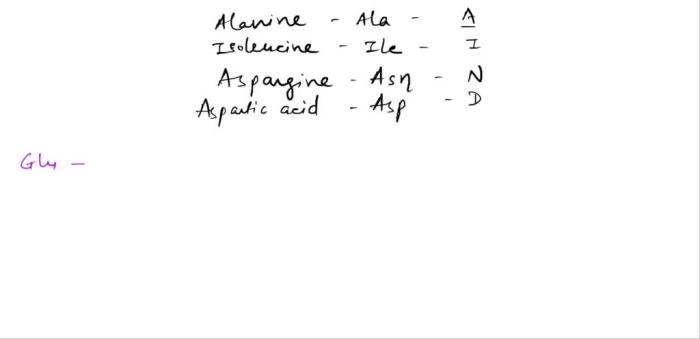 Alanine - Ala - A
Isoleucine - Ile - I
Aspargine - Asn - N
Aspartic acid - Asp - D
Gly -